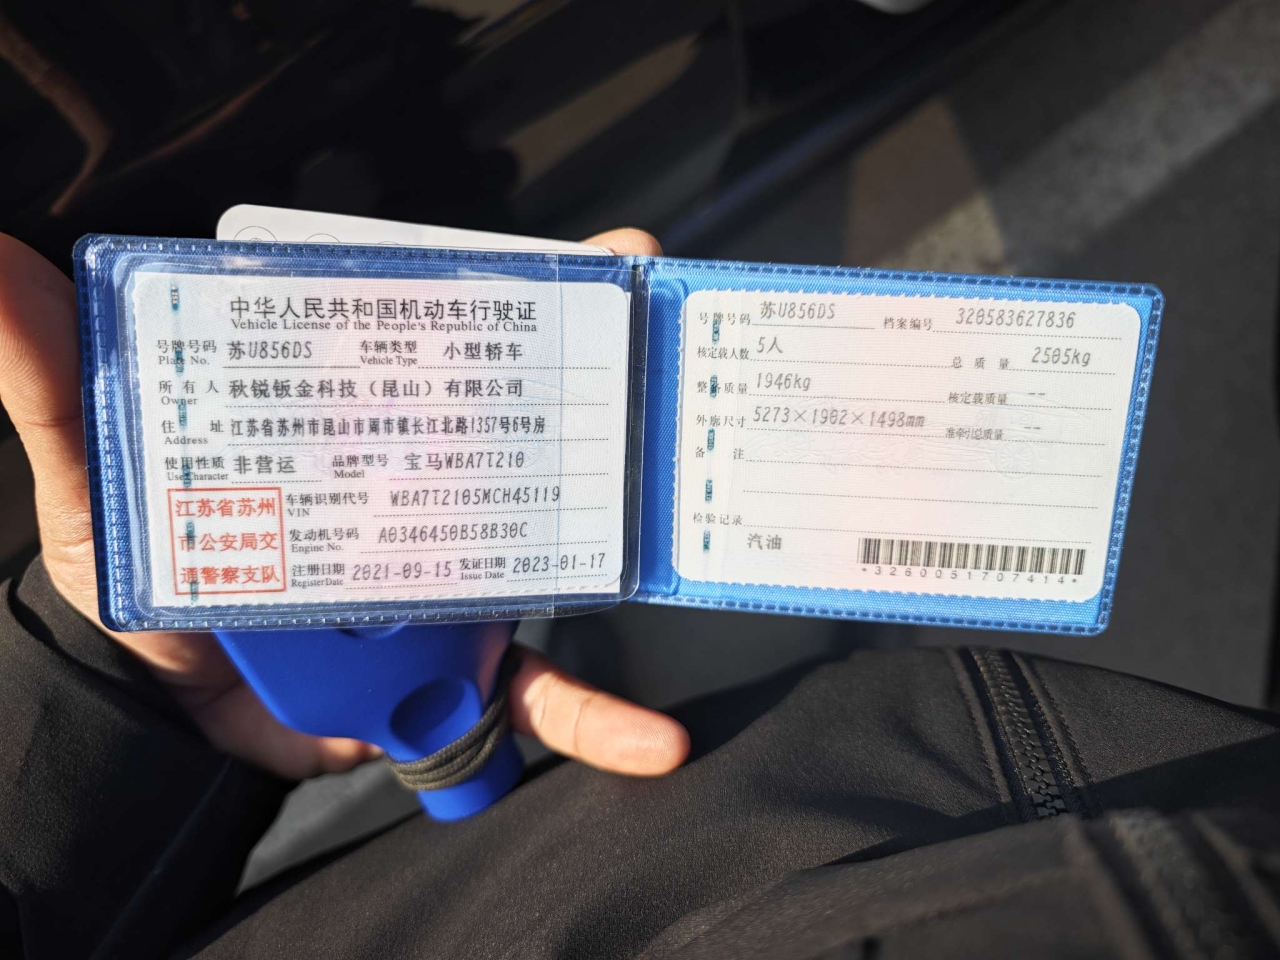 中华人民共和国机动车行驶证
Vehicle License of the People's Republic of China
号牌号码 苏U856DS 车辆类型 小型轿车
Plate No. Vehicle Type
所有人 秋锐钣金科技（昆山）有限公司
Owner
住址 江苏省苏州市昆山市周市镇长江北路1357号6号房
Address
使用性质 非营运 品牌型号 宝马WBA7T210
Use Character Model
江苏省苏州
市公安局交
通警察支队
车辆识别代号 WBA7T2105MCH45119
VIN
发动机号码 A0346450B58B30C
Engine No.
注册日期 2021-09-15 发证日期 2023-01-17
Register Date Issue Date
号牌号码 苏U856DS 档案编号 320583627836
核定载人数 5人 总质量 2505kg
整备质量 1946kg 核定载质量 --
外廓尺寸 5273×1902×1498mm 准牵引总质量 --
备注
检验记录
汽油
*3260051707414*